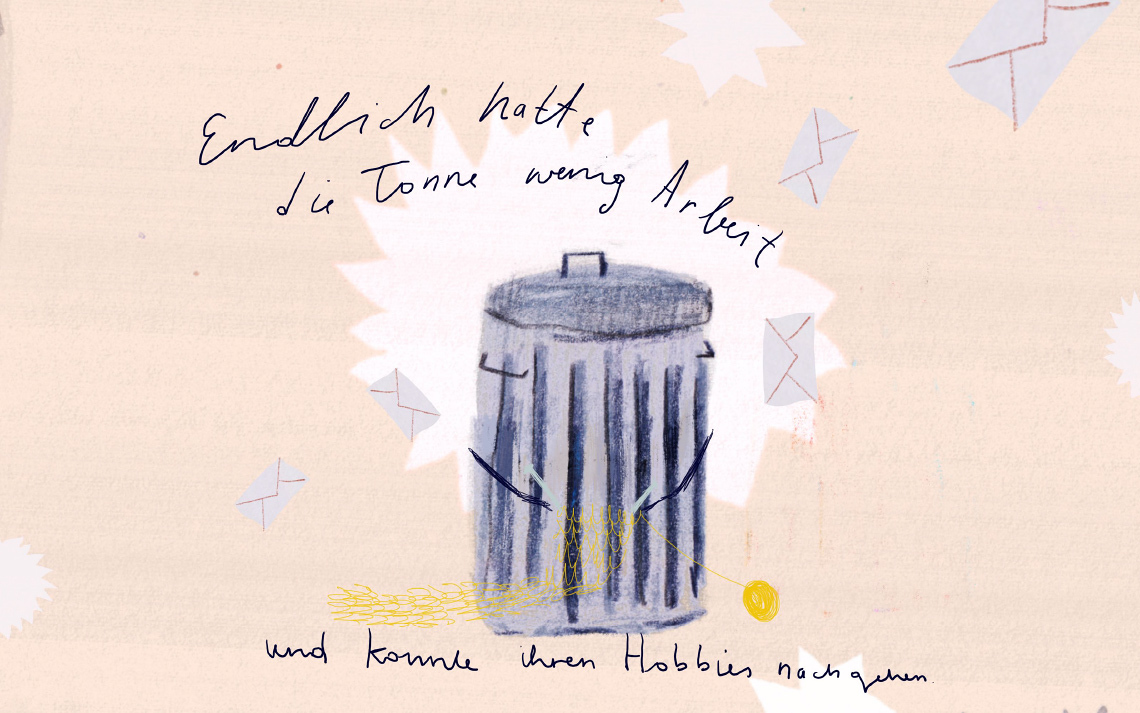 Endlich hatte
die Tonne wenig Arbeit
und konnte ihren Hobbies nachgehen.